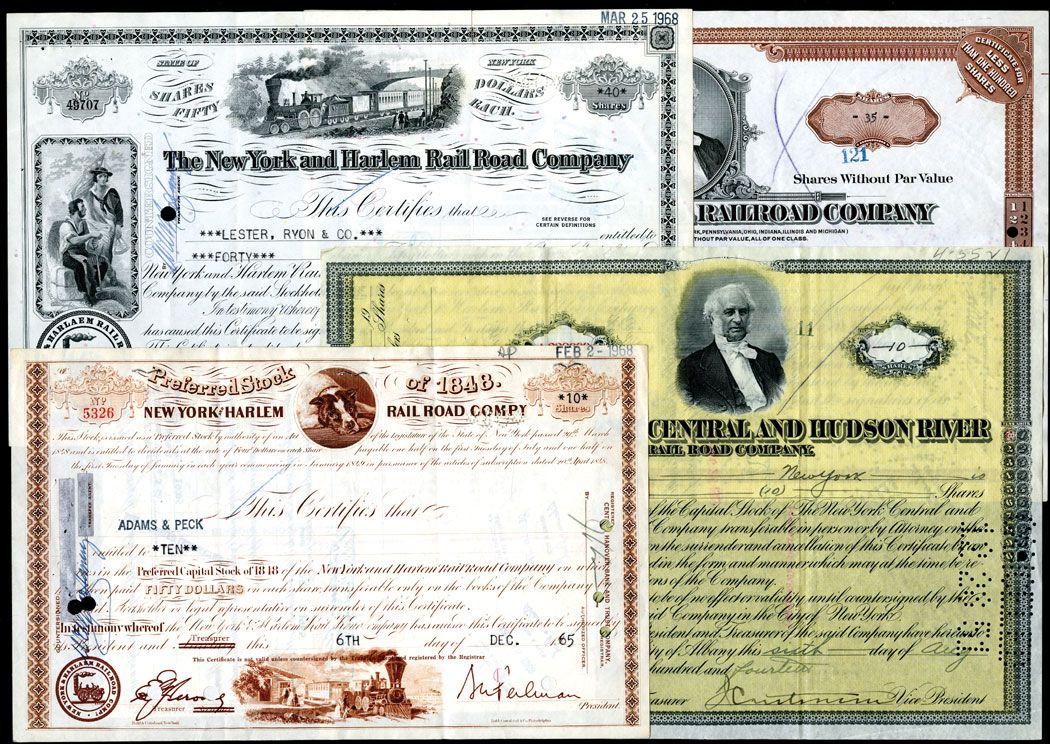 MAR 25 1968
STATE OF NEW YORK
SHARES DOLLARS
FIFTY EACH.
Nº 49707
*40*
Shares
The New York and Harlem Rail Road Company
This Certifies that
SEE REVERSE FOR
CERTAIN DEFINITIONS
***LESTER, RYON & CO.***
entitled to
***FORTY***
New York and Harlem Rail
Company by the said Stockhol
In testimony whereof
has caused this Certificate to be sig
HARLAEM RAILR
CERTIFICATE FOR
LESS
THAN ONE HUNDRED
SHARES
SHARES
- 35 -
121
Shares Without Par Value
RAILROAD COMPANY
K, PENNSYLVANIA, OHIO, INDIANA, ILLINOIS AND MICHIGAN)
THOUT PAR VALUE, ALL OF ONE CLASS.
19
Shares
11
10
SHARES
CENTRAL AND HUDSON RIVER
RAIL ROAD COMPANY.
New York is
(10) Shares
the Capital Stock of The New York Central and
Company transferable in person or by Attorney on the
the surrender and cancellation of this Certificate by an
in the form and manner which may at the time be re
ns of the Company.
be of no effect or validity until countersigned by the
id Company in the City of New York.
esident and Treasurer of the said Company have hereunto
y of Albany this sixth day of Aug
hundred and fourteen
surer Vice President
AP FEB 2 - 1968
Preferred Stock of 1848.
Nº
5326
*10*
Shares
NEW YORK AND HARLEM RAIL ROAD COMPY
This Stock is issued as a Preferred Stock by authority of an Act of the legislature of the State of New York passed 29th March
1848 and is entitled to dividends at the rate of Four Dollars on each share payable one half on the first Tuesday of July and one half on
the first Tuesday of January in each year commencing in January 1849 in pursuance of the articles of subscription dated
This Certifies that
ADAMS & PECK
entitled to
*TEN**
shares in the Preferred Capital Stock of 1848 of the New York and Harlem Rail Road Company on which
been paid FIFTY DOLLARS on each share transferable only on the books of the Company
Stockholder or legal representative on surrender of this Certificate.
In testimony whereof the New York & Harlem Rail Road Company has caused this Certificate to be signed by
President and Treasurer this 6TH day of DEC. 65
This Certificate is not valid unless countersigned by the Transfer Agent and registered by the Registrar
NEW YORK & HARLAEM RAILROAD COMPY
Treasurer
President.